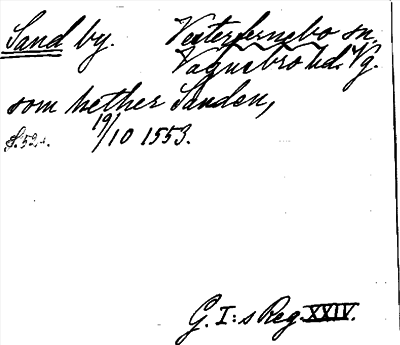 Sand by. Vesterfernebo sn,
Vagnsbro hd. Vg.
som hether Sanden,
S. 52. s. 19/10 1553.
G. I:s Reg. XXIV.